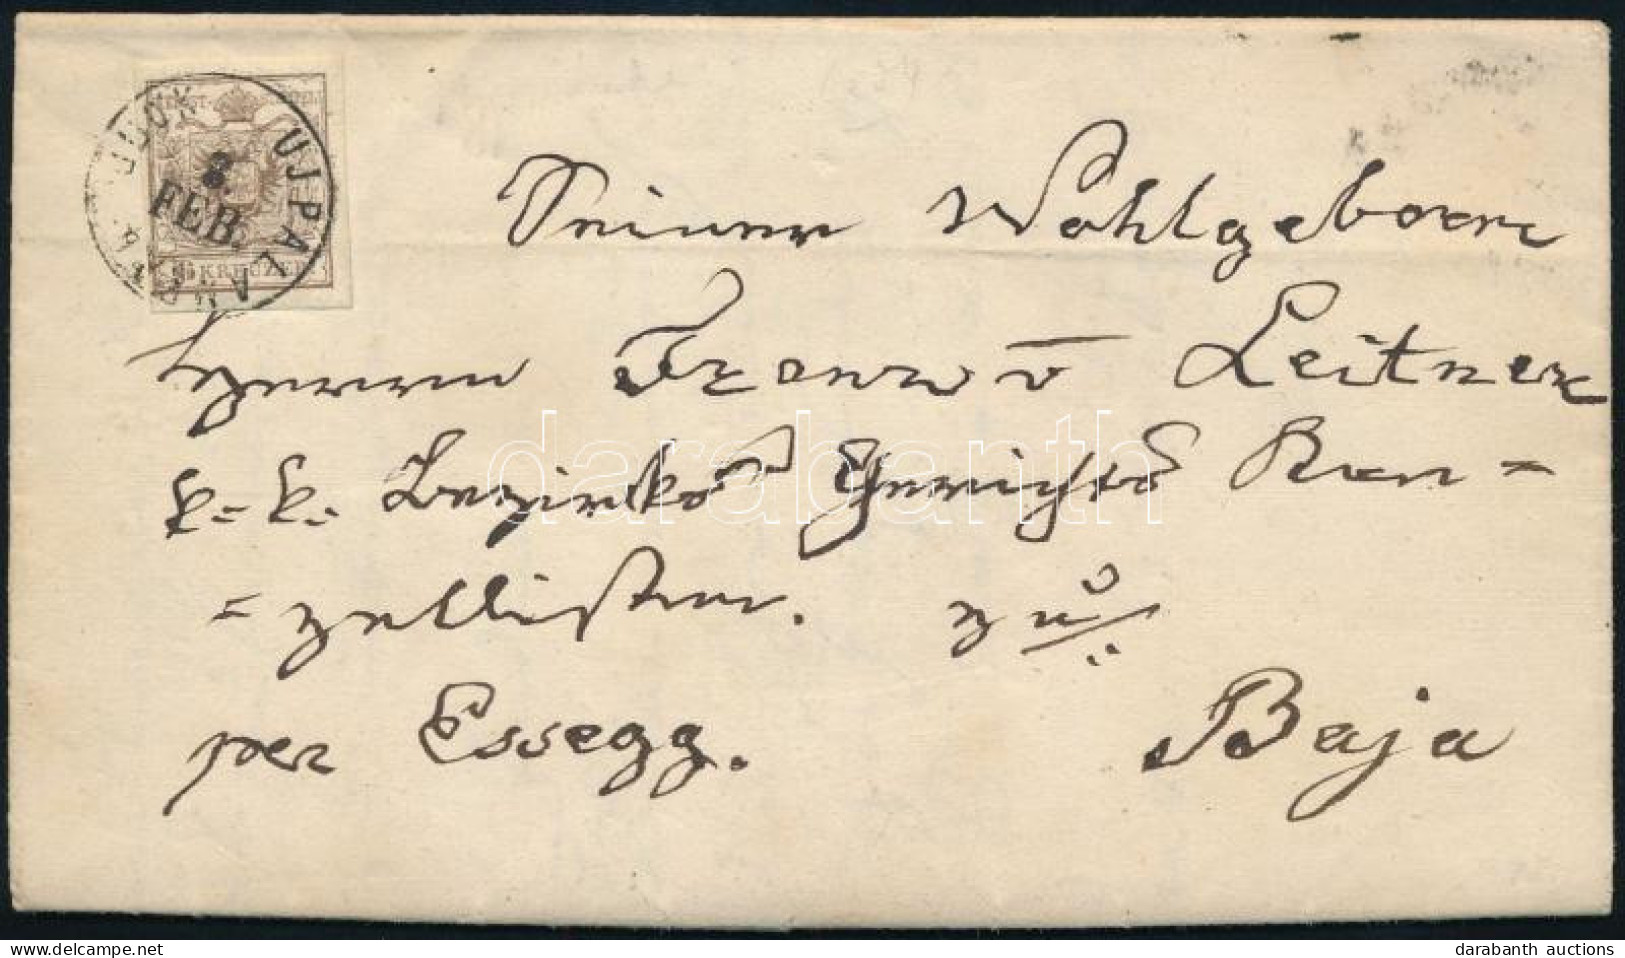 UJPALANKA
8
FEB.
6 KREUZER
Seiner Wohlgeboren
Herrn Franz v Leitner
k. k. Bezirks Gerichts Kan=
=zellisten. zu
per Essegg. Baja
darabanth
delcampe.net
darabanth auctions